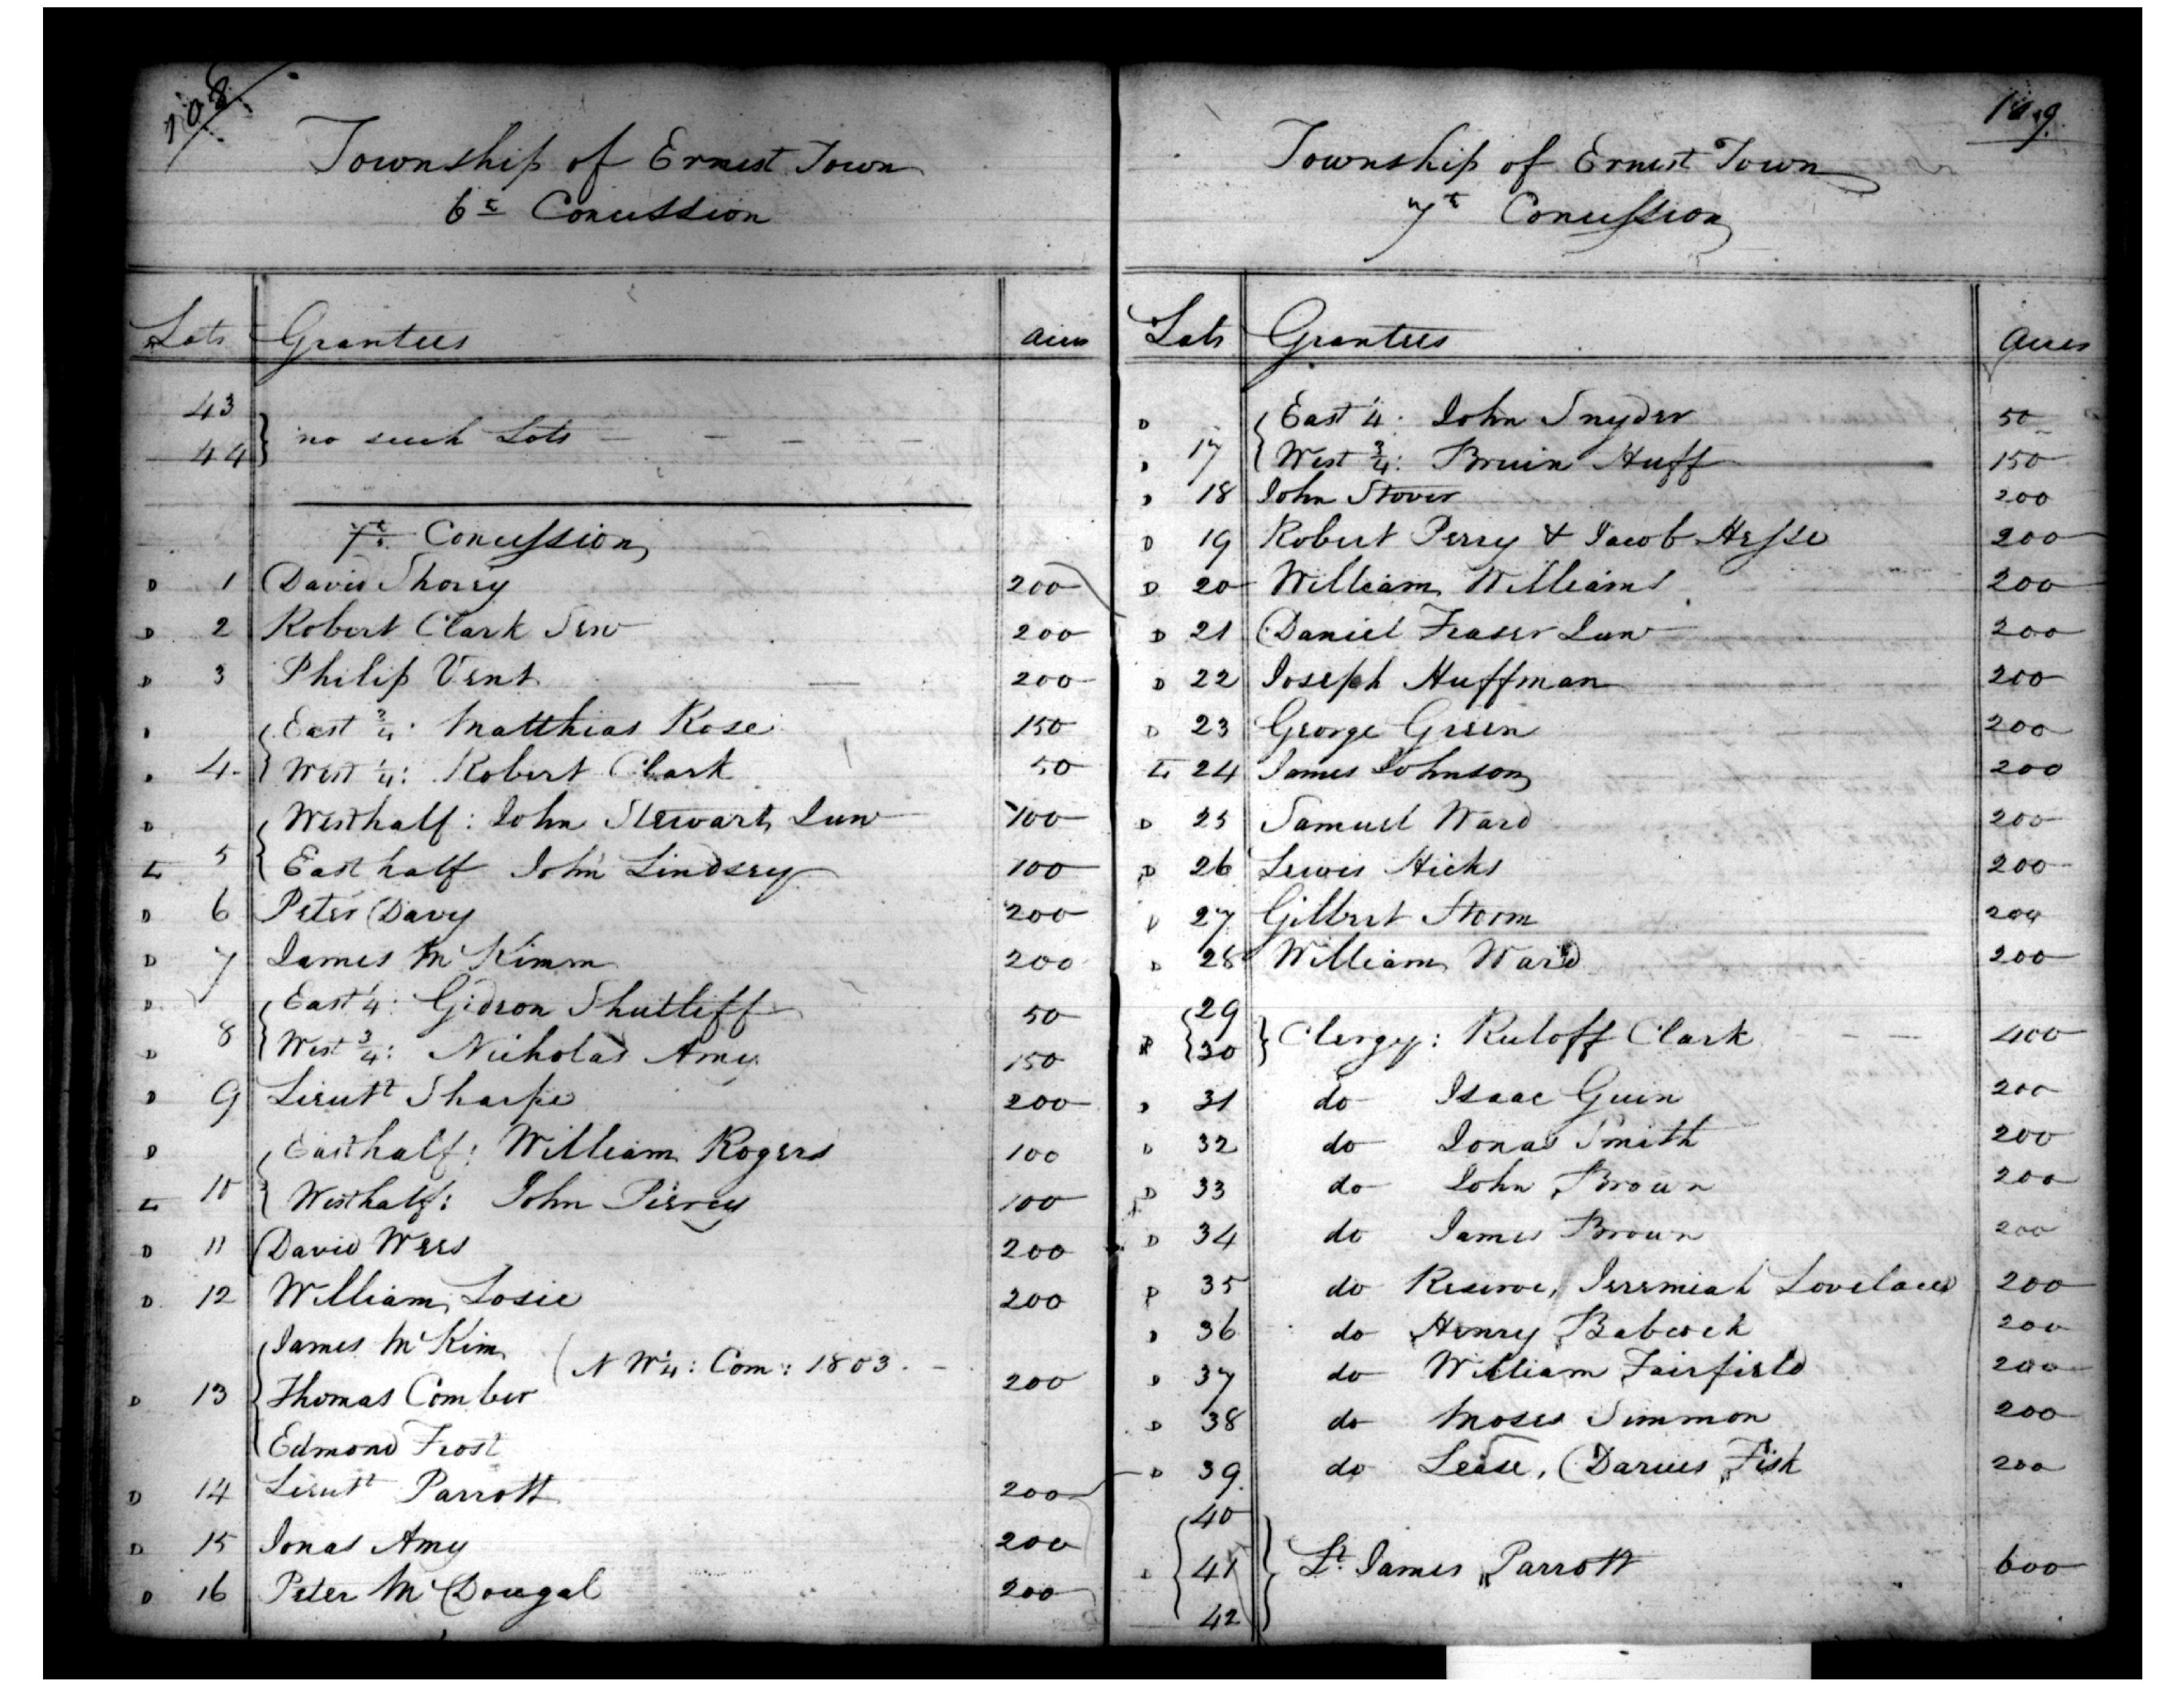 108
Township of Ernest Town
6t Concession
Lots Grantees Acres
43
44 } no such Lots
7t Concession
D 1 David Shorey 200
D 2 Robert Clark Senr 200
D 3 Philip Vent 200
East 3/4: Matthias Rose 150
4 West 1/4: Robert Clark 50
D West half: John Stewart Junr 100
L 5 East half John Lindsey 100
D 6 Peter Davy 200
D 7 James McKimm 200
D East 1/4: Gideon Shutliff 50
D 8 West 3/4: Nicholas Amey 150
D 9 Lieutt Sharpe 200
D East half: William Rogers 100
L 10 West half: John Piercy 100
D 11 David Wees 200
D 12 William Losie 200
James McKim
(N W 1/4: Com: 1803.
D 13 Thomas Comber 200
Edmond Frost
D 14 Lieutt Parrott 200
D 15 Jonas Amy 200
D 16 Peter McDougal 200
109
Township of Ernest Town
7t Concession
Lots Grantees Acres
D East 1/4: John Snyder 50
D 17 West 3/4: Bruin Huff 150
D 18 John Stover 200
D 19 Robert Perry & Jacob Hesse 200
D 20 William Williams 200
D 21 Daniel Fraser Junr 200
D 22 Joseph Huffman 200
D 23 George Green 200
L 24 James Johnson 200
D 25 Samuel Ward 200
D 26 Lewis Hicks 200
D 27 Gilbert Storm 200
D 28 William Ward 200
29
D 30 } Clergy: Ruloff Clark 400
D 31 do Isaac Guin 200
D 32 do Jonas Smith 200
D 33 do John Brown 200
D 34 do James Brown 200
D 35 do Reserve, Jeremiah Lovelace 200
D 36 do Henry Babcock 200
D 37 do William Fairfield 200
D 38 do Moses Simmon 200
D 39 do Lease, Darius Fish 200
40
D 41 Lt. James Parrott 600
42